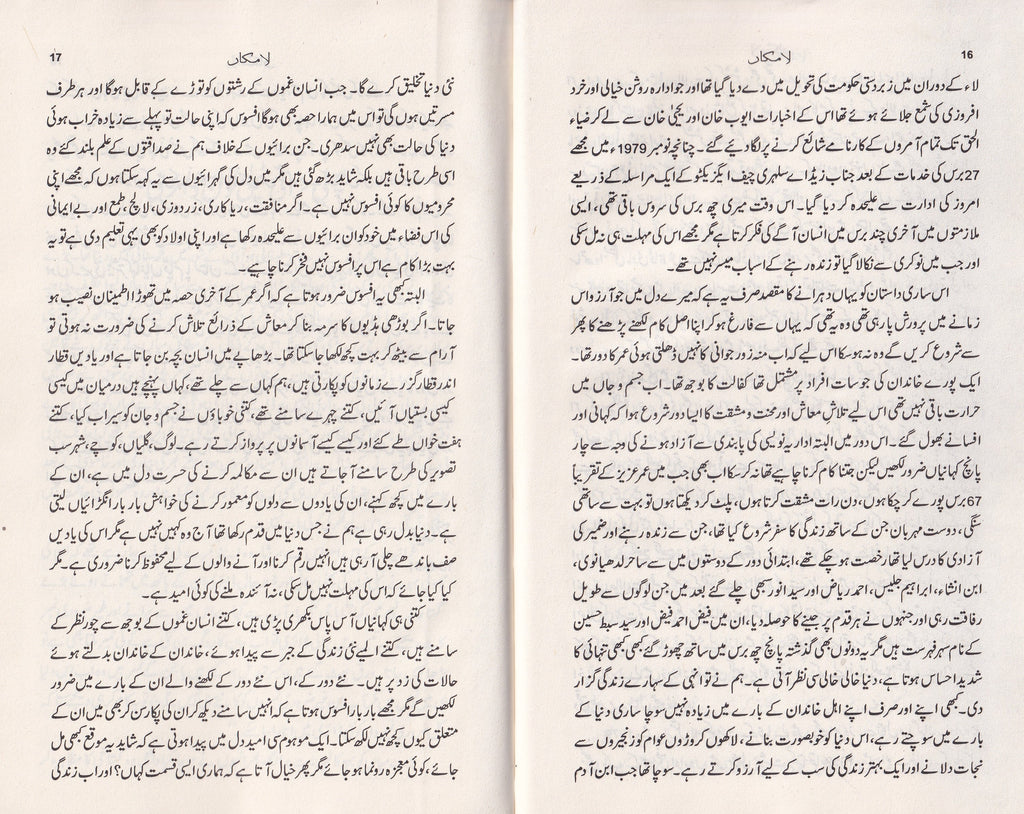 16
لامکاں
لاء کے دوران میں زبردستی حکومت کی تحویل میں دے دیا گیا تھا اور جو ادارہ روشن خیالی اور خرد
افروزی کی شمع جلائے ہوئے تھا اس کے اخبارات ایوب خان اور یحییٰ خان سے لے کر ضیاء
الحق تک تمام آمروں کے کارنامے شائع کرنے پر لگا دیئے گئے۔ چنانچہ نومبر 1979ء میں مجھے
27 برس کی خدمات کے بعد جناب زیڈ اے سلہری چیف ایگزیکٹو کے ایک مراسلہ کے ذریعے
امروز کی ادارت سے علیحدہ کر دیا گیا۔ اس وقت میری چھ برس کی سروس باقی تھی، ایسی
ملازمتوں میں آخری چند برس میں انسان آگے کی فکر کرتا ہے مگر مجھے اس کی مہلت ہی نہ مل سکی
اور جب میں نوکری سے نکالا گیا تو زندہ رہنے کے اسباب میسر نہیں تھے۔
اس ساری داستان کو یہاں دہرانے کا مقصد صرف یہ ہے کہ میرے دل میں جو آرزو اس
زمانے میں پرورش پا رہی تھی وہ یہ تھی کہ یہاں سے فارغ ہو کر اپنا اصل کام لکھنے پڑھنے کا پھر
سے شروع کریں گے وہ نہ ہو سکا اس لیے کہ اب منہ زور جوانی کا نہیں ڈھلتی ہوئی عمر کا دور تھا۔
ایک پورے خاندان کی جو سات افراد پر مشتمل تھا کفالت کا بوجھ تھا۔ اب جسم و جاں میں
حرارت باقی نہیں تھی اس لیے تلاشِ معاش اور محنت و مشقت کا ایسا دور شروع ہوا کہ کہانی اور
افسانے بھول گئے۔ اس دور میں البتہ اداریہ نویسی کی پابندی سے آزاد ہونے کی وجہ سے چار
پانچ کہانیاں ضرور لکھیں لیکن جتنا کام کرنا چاہیے تھا نہ کر سکا اب بھی جب میں عمر عزیز کے تقریباً
67 برس پورے کر چکا ہوں، دن رات مشقت کرتا ہوں، پلٹ کر دیکھتا ہوں تو بہت سے ساتھی
سنگی، دوست مہربان جن کے ساتھ زندگی کا سفر شروع کیا تھا، جن سے زندہ رہنے اور ضمیر کی
آزادی کا درس لیا تھا رخصت ہو چکے تھے، ابتدائی دور کے دوستوں میں سے ساحر لدھیانوی،
ابن انشاء، ابراہیم جلیس، احمد ریاض اور سید انور سبھی چلے گئے بعد میں جن لوگوں سے طویل
رفاقت رہی اور جنہوں نے ہر قدم پر جینے کا حوصلہ دیا، ان میں فیض احمد فیض اور سید سبط حسین
کے نام سرفہرست ہیں مگر یہ دونوں بھی گذشتہ پانچ چھ برس میں ساتھ چھوڑ گئے کبھی کبھی تنہائی کا
شدید احساس ہوتا ہے، دنیا خالی خالی سی نظر آتی ہے۔ ہم نے تو انہی کے سہارے زندگی گزار
دی۔ کبھی اپنے اور صرف اپنے اہل خاندان کے بارے میں زیادہ نہیں سوچا ساری دنیا کے
بارے میں سوچتے رہے، اس دنیا کو خوبصورت بنانے، لاکھوں کروڑوں عوام کو زنجیروں سے
نجات دلانے اور ایک بہتر زندگی کی سب کے لیے آرزو کرتے رہے۔ سوچا تھا جب ابن آدم
17
لامکاں
نئی دنیا تخلیق کرے گا۔ جب انسان غموں کے رشتوں کو توڑے کے قابل ہوگا اور ہر طرف
مسرتیں ہوں گی تو اس میں ہمارا حصہ بھی ہوگا افسوس کہ اپنی حالت تو پہلے سے زیادہ خراب ہوئی
دنیا کی حالت بھی نہیں سدھری۔ جن برائیوں کے خلاف ہم نے صداقتوں کے علم بلند کئے وہ
اسی طرح باقی ہیں بلکہ شاید بڑھ گئی ہیں مگر میں دل کی گہرائیوں سے یہ کہہ سکتا ہوں کہ مجھے اپنی
محرومیوں کا کوئی افسوس نہیں ہے۔ اگر منافقت، ریاکاری، زردوزی، لالچ، طمع اور بے ایمانی
کی اس فضاء میں خود کو ان برائیوں سے علیحدہ رکھا ہے اور اپنی اولاد کو بھی یہی تعلیم دی ہے تو یہ
بہت بڑا کام ہے اس پر افسوس نہیں فخر کرنا چاہیے۔
البتہ کبھی یہ افسوس ضرور ہوتا ہے کہ اگر عمر کے آخری حصہ میں تھوڑا اطمینان نصیب ہو
جاتا۔ اگر بوڑھی ہڈیوں کا سرمہ بنا کر معاش کے ذرائع تلاش کرنے کی ضرورت نہ ہوتی تو
آرام سے بیٹھ کر بہت کچھ لکھا جا سکتا تھا۔ بڑھاپے میں انسان بچہ بن جاتا ہے اور یادیں قطار
اندر قطار گزرے زمانوں کو پکارتی ہیں، ہم کہاں سے چلے تھے، کہاں پہنچے ہیں درمیان میں کیسی
کیسی بستیاں آئیں، کتنے چہرے سامنے تھے، کتنی خوباؤں نے جسم و جان کو سیراب کیا، کتنے
ہفت خواں طے کئے اور کیسے کیسے آسمانوں پر پرواز کرتے رہے۔ لوگ، گلیاں، کوچے، شہر سب
تصویر کی طرح سامنے آ جاتے ہیں ان سے مکالمہ کرنے کی حسرت دل میں ہے، ان کے
بارے میں کچھ کہنے، ان کی یادوں سے دلوں کو معمور کرنے کی خواہش بار بار انگڑائیاں لیتی
ہے۔ دنیا بدل رہی ہے ہم نے جس دنیا میں قدم رکھا تھا آج وہ کہیں نہیں ہے مگر اس کی یادیں
صف باندھے چلی آ رہی ہیں انہیں رقم کرنا اور آنے والوں کے لیے محفوظ کرنا ضروری ہے۔ مگر
کیا کیا جائے کہ اس کی مہلت نہیں مل سکی، نہ آئندہ ملنے کی کوئی امید ہے۔
کتنی ہی کہانیاں آس پاس بکھری پڑی ہیں، کتنے انسان غموں کے بوجھ سے چور نظر کے
سامنے ہیں، کتنے المیے نئی زندگی کے جبر سے پیدا ہوئے، خاندان کے خاندان بدلتے ہوئے
حالات کی زد پر ہیں۔ نئے دور کے، اس نئے دور کے لکھنے والے ان کے بارے میں ضرور
لکھیں گے مگر مجھے بار بار افسوس ہوتا ہے کہ انہیں سامنے دیکھ کر ان کی پکار سن کر بھی میں ان کے
متعلق کیوں کچھ نہیں لکھ سکتا۔ ایک موہوم سی امید دل میں پیدا ہوتی ہے کہ شاید یہ موقع کبھی مل
جائے، کوئی معجزہ رونما ہو جائے مگر پھر خیال آتا ہے کہ ہماری ایسی قسمت کہاں؟ اور اب زندگی